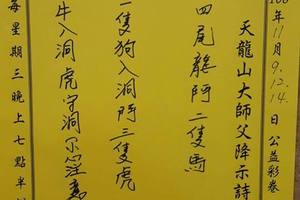 年11月9.12.14.日公益彩卷
天龍山大師父降示詩
四尾龍阿二隻馬
一隻狗入洞阿三隻虎
牛入洞虎守洞不注意
每星期三晚上七點半